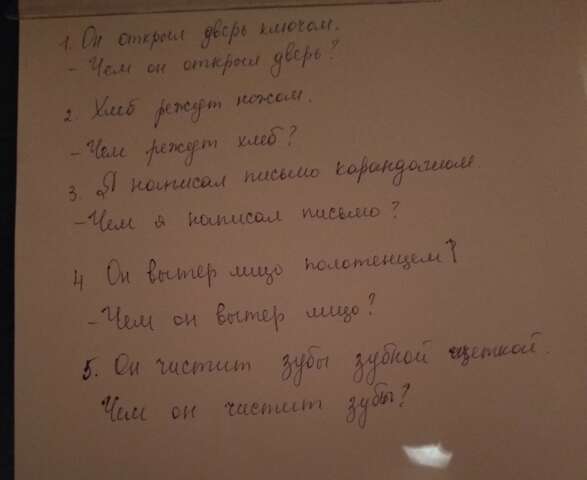 1. Он открыл дверь ключом.
- Чем он открыл дверь?
2. Хлеб режут ножом.
- Чем режут хлеб?
3. Я написал письмо карандашом.
- Чем я написал письмо?
4 Он вытер лицо полотенцем?
- Чем он вытер лицо?
5. Он чистит зубы зубной щеткой.
Чем он чистит зубы?